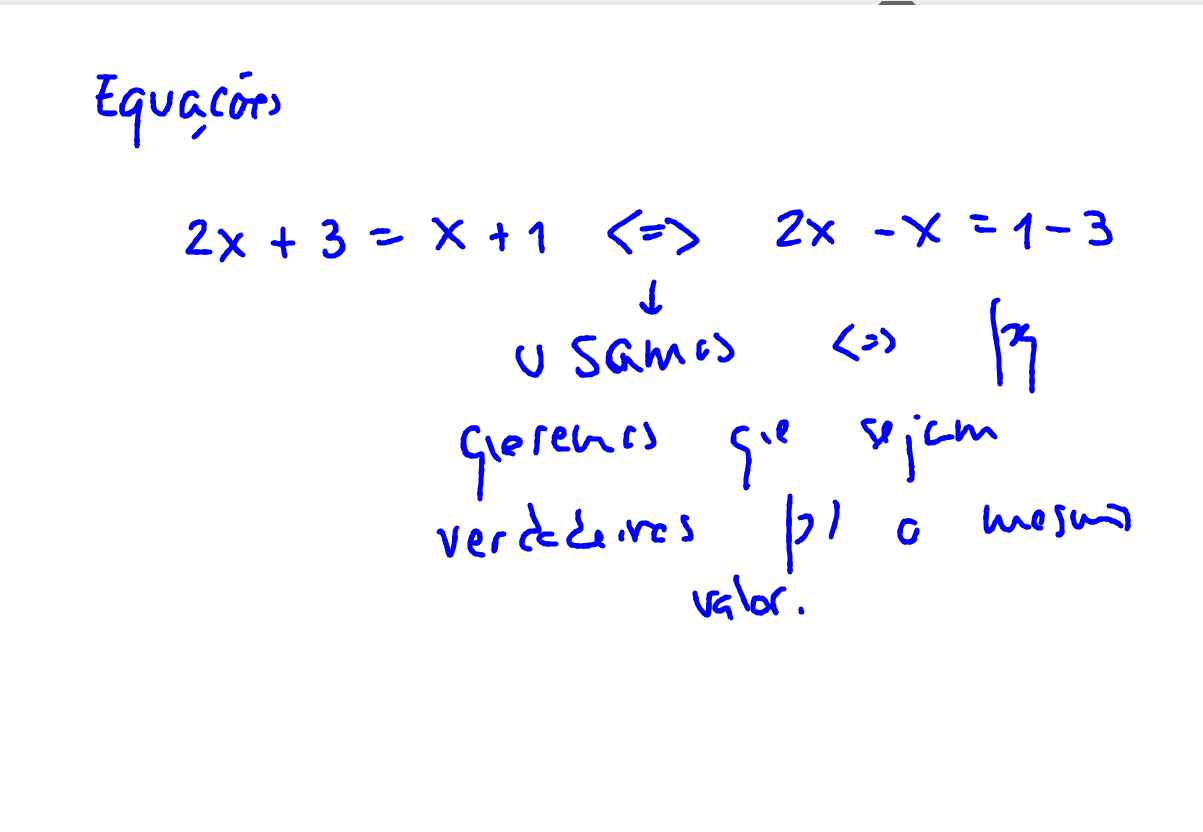 Equações
2x + 3 = x + 1 <=> 2x - x = 1 - 3
↓
usamos <=> pq
queremos que sejam
verdadeiras p/ o mesmo
valor.